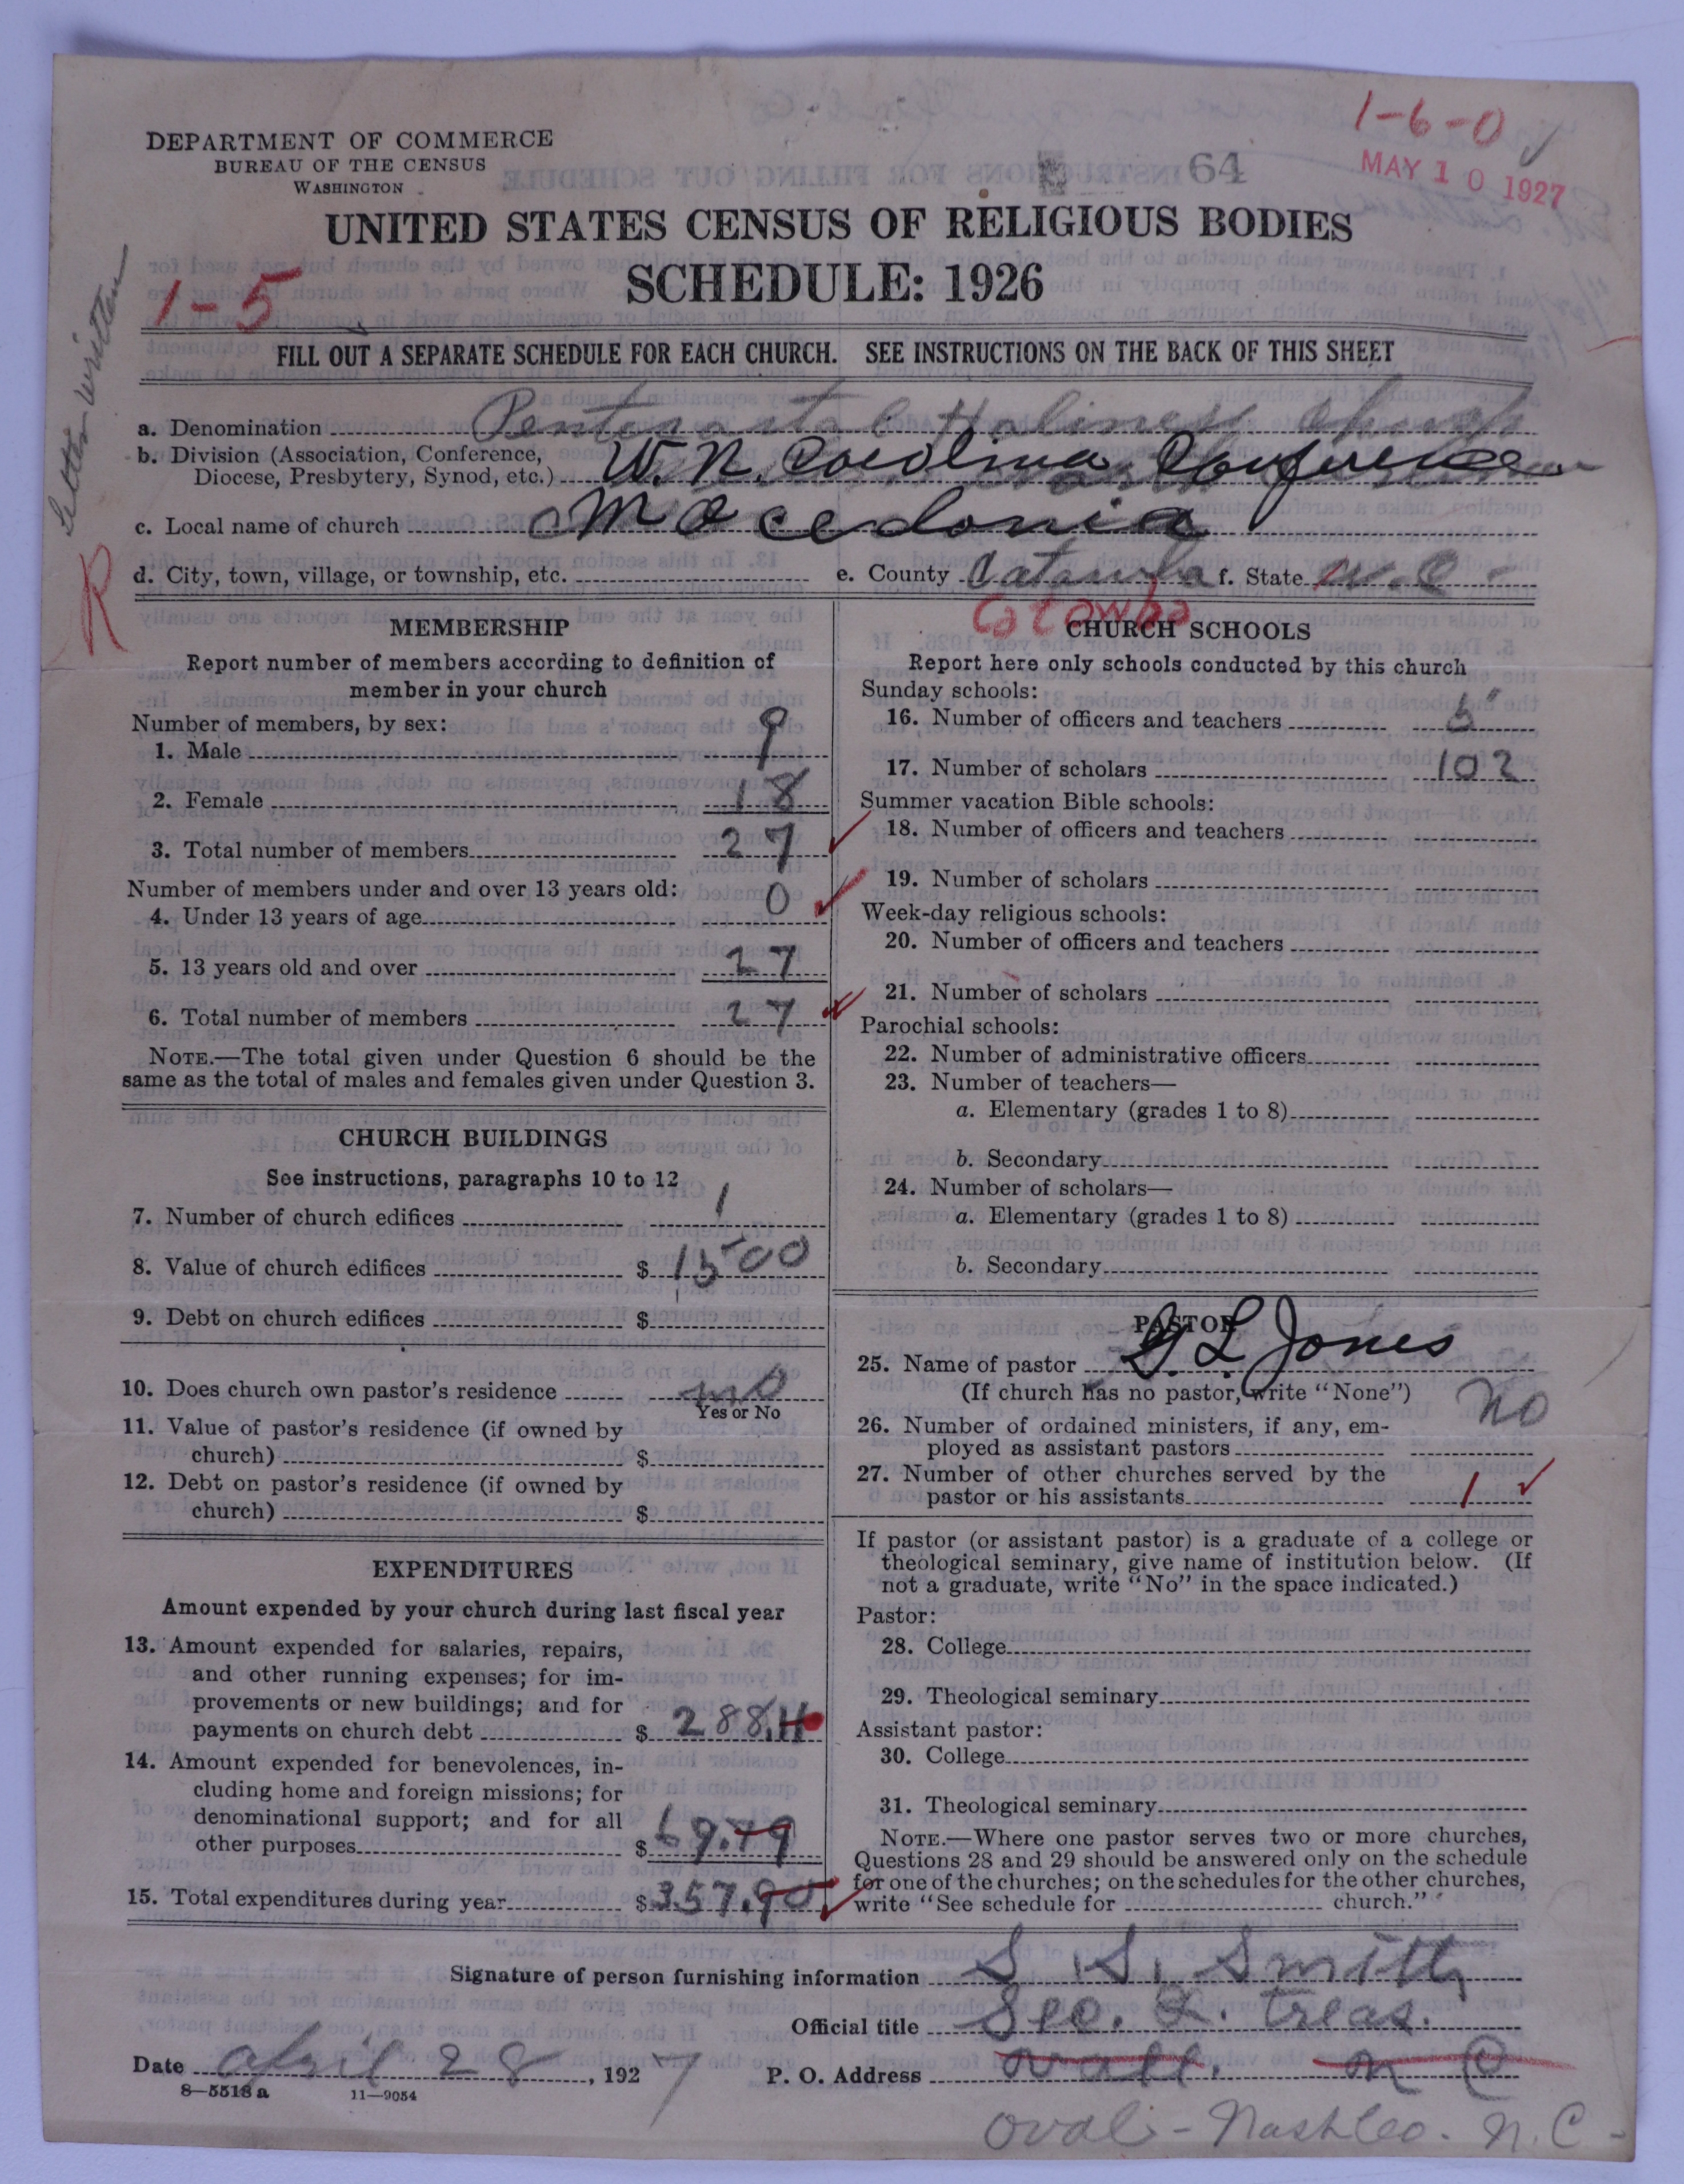 1-6-0
DEPARTMENT OF COMMERCE
BUREAU OF THE CENSUS
WASHINGTON
64
MAY 10 1927
UNITED STATES CENSUS OF RELIGIOUS BODIES
SCHEDULE: 1926
1-5
Letter written
FILL OUT A SEPARATE SCHEDULE FOR EACH CHURCH. SEE INSTRUCTIONS ON THE BACK OF THIS SHEET
a. Denomination Pentecostal Holiness Church
b. Division (Association, Conference,
Diocese, Presbytery, Synod, etc.) W. N. Carolina Conference
c. Local name of church Macedonia
R
d. City, town, village, or township, etc. e. County Catawba f. State N. C.
Catawba
MEMBERSHIP
Report number of members according to definition of
member in your church
Number of members, by sex:
1. Male 9
2. Female 18
3. Total number of members 27
Number of members under and over 13 years old:
4. Under 13 years of age 0
5. 13 years old and over 27
6. Total number of members 27
NOTE.—The total given under Question 6 should be the
same as the total of males and females given under Question 3.
CHURCH BUILDINGS
See instructions, paragraphs 10 to 12
7. Number of church edifices 1
8. Value of church edifices $ 1500
9. Debt on church edifices $
10. Does church own pastor's residence no
Yes or No
11. Value of pastor's residence (if owned by
church) $
12. Debt on pastor's residence (if owned by
church) $
EXPENDITURES
Amount expended by your church during last fiscal year
13. Amount expended for salaries, repairs,
and other running expenses; for im-
provements or new buildings; and for
payments on church debt $ 288.11
14. Amount expended for benevolences, in-
cluding home and foreign missions; for
denominational support; and for all
other purposes $ 69.79
15. Total expenditures during year $ 357.90
CHURCH SCHOOLS
Report here only schools conducted by this church
Sunday schools:
16. Number of officers and teachers
17. Number of scholars 102
Summer vacation Bible schools:
18. Number of officers and teachers
19. Number of scholars
Week-day religious schools:
20. Number of officers and teachers
21. Number of scholars
Parochial schools:
22. Number of administrative officers
23. Number of teachers—
a. Elementary (grades 1 to 8)
b. Secondary
24. Number of scholars—
a. Elementary (grades 1 to 8)
b. Secondary
PASTOR
25. Name of pastor G L Jones
(If church has no pastor, write "None")
26. Number of ordained ministers, if any, em-
ployed as assistant pastors no
27. Number of other churches served by the
pastor or his assistants 1
If pastor (or assistant pastor) is a graduate of a college or
theological seminary, give name of institution below. (If
not a graduate, write "No" in the space indicated.)
Pastor:
28. College
29. Theological seminary
Assistant pastor:
30. College
31. Theological seminary
NOTE.—Where one pastor serves two or more churches,
Questions 28 and 29 should be answered only on the schedule
for one of the churches; on the schedules for the other churches,
write "See schedule for church."
Signature of person furnishing information S. S. Smith
Official title Sec. & Treas.
Date April 28, 1927 P. O. Address N C
8—5518 a 11—9054
Nash Co. N. C.